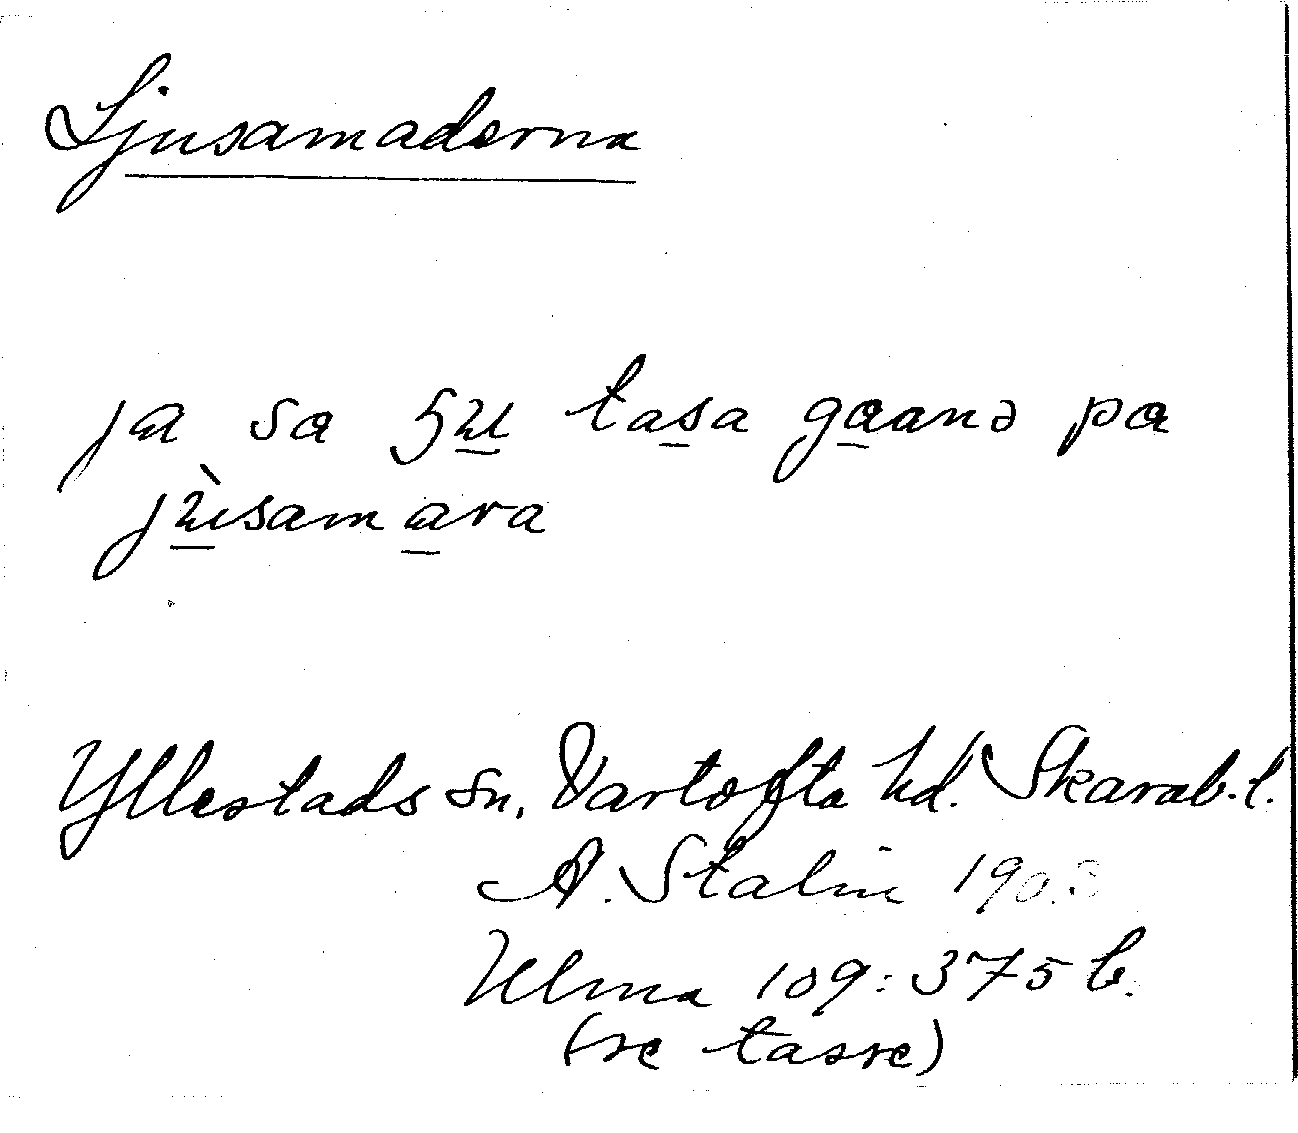 Ljusamaderna
ja sa ʒu tasa gaanə pa
jùsamara
Yllestads sn, Vartofta hd. Skarab. l.
A. Stalin
Ulma 109:375 b.
(se tasse)